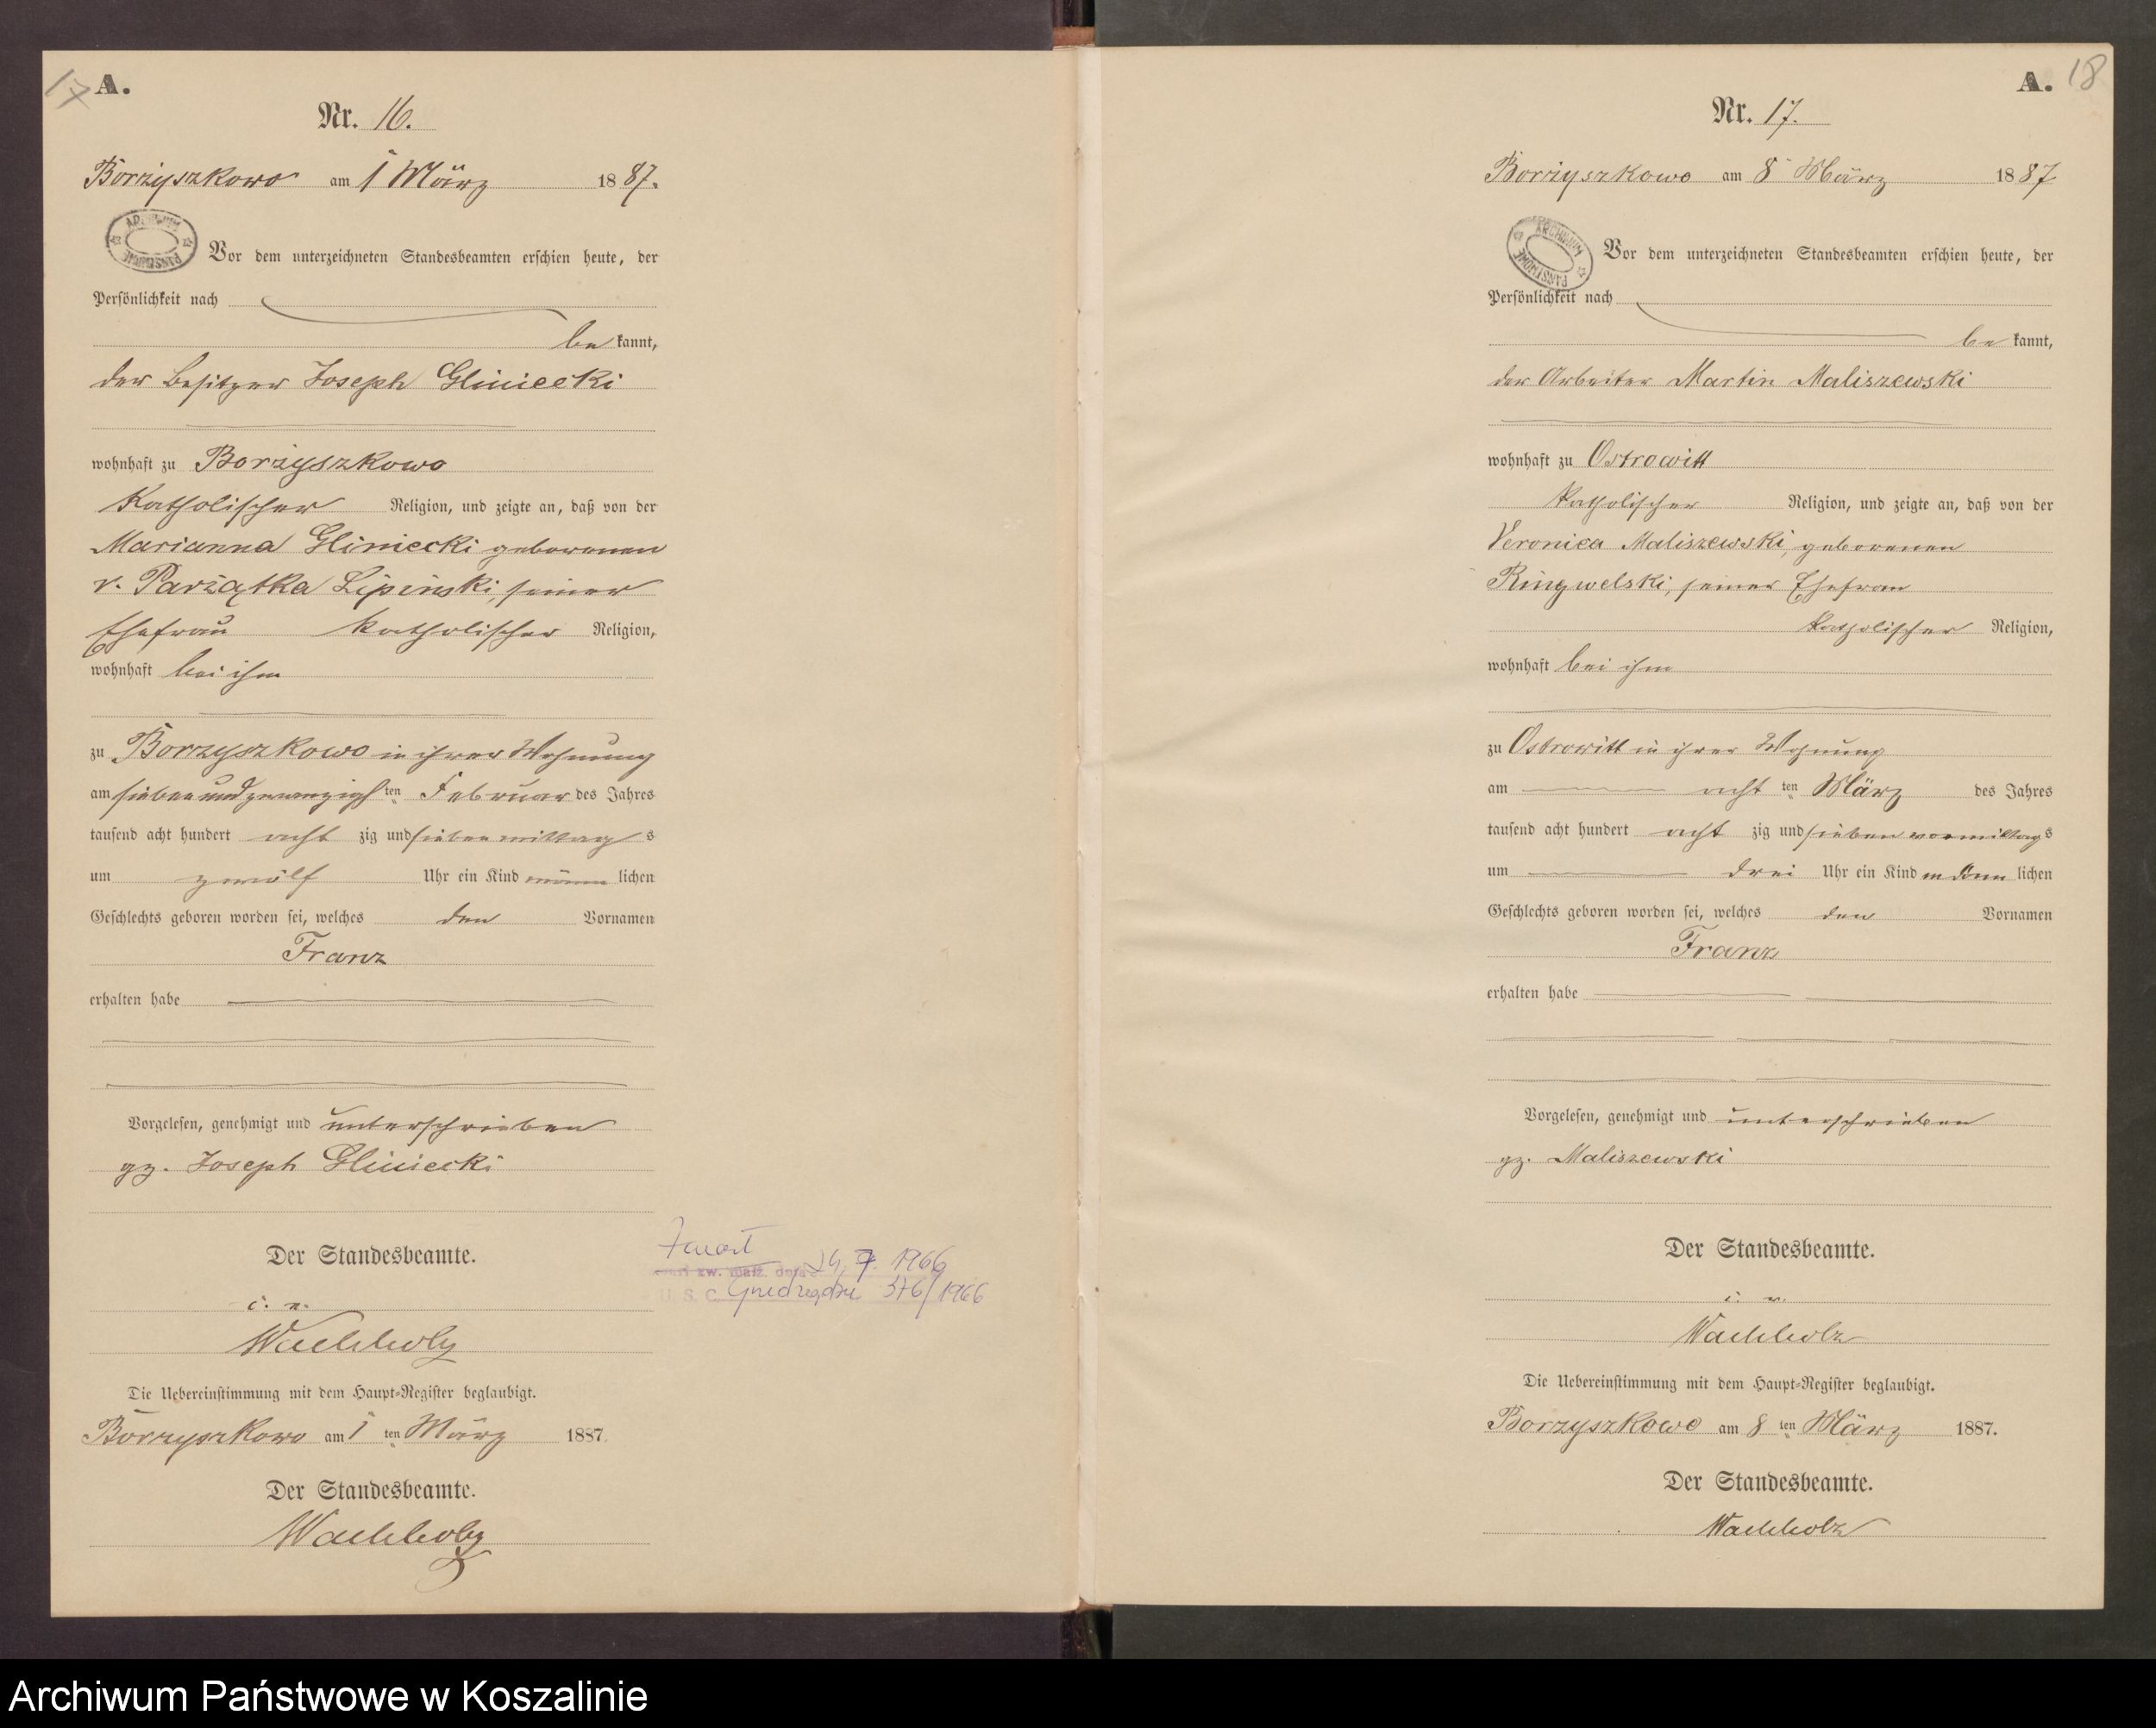 17
A.
Nr. 16.
Borzyszkowo am 1 März 1887.
ARCHIWUM PAŃSTWOWE
Vor dem unterzeichneten Standesbeamten erschien heute, der
Persönlichkeit nach
be kannt,
der Besitzer Joseph Gliniecki
wohnhaft zu Borzyszkowo
Katholischer Religion, und zeigte an, daß von der
Marianna Gliniecki geborenen
v. Parzątka Lipinski, seiner
Ehefrau katholischer Religion,
wohnhaft bei ihm
zu Borzyszkowo in ihrer Wohnung
am siebenundzwanzigsten Februar des Jahres
tausend acht hundert acht zig und sieben mittags
um zwölf Uhr ein Kind männlichen
Geschlechts geboren worden sei, welches den Vornamen
Franz
erhalten habe
Vorgelesen, genehmigt und unterschrieben
gz. Joseph Gliniecki
Der Standesbeamte.
i. v.
Wachholz
Die Uebereinstimmung mit dem Haupt-Register beglaubigt.
Borzyszkowo am 1 ten März 1887.
Der Standesbeamte.
Wachholz
Zmarł
zw. małż. dnia 24. 7. 1966
U. S. C. 576/1966
A. 18
Nr. 17.
Borzyszkowo am 8 März 1887
ARCHIWUM PAŃSTWOWE
Vor dem unterzeichneten Standesbeamten erschien heute, der
Persönlichkeit nach
be kannt,
der Arbeiter Martin Maliszewski
wohnhaft zu Ostrowitt
katholischer Religion, und zeigte an, daß von der
Veronica Maliszewski, geborenen
Ringwelski, seiner Ehefrau
katholischer Religion,
wohnhaft bei ihm
zu Ostrowitt in ihrer Wohnung
am acht ten März des Jahres
tausend acht hundert acht zig und sieben vormittags
um drei Uhr ein Kind männlichen
Geschlechts geboren worden sei, welches den Vornamen
Franz
erhalten habe
Vorgelesen, genehmigt und unterschrieben
gz. Maliszewski
Der Standesbeamte.
i. v.
Wachholz
Die Uebereinstimmung mit dem Haupt-Register beglaubigt.
Borzyszkowo am 8 ten März 1887.
Der Standesbeamte.
Wachholz
Archiwum Państwowe w Koszalinie